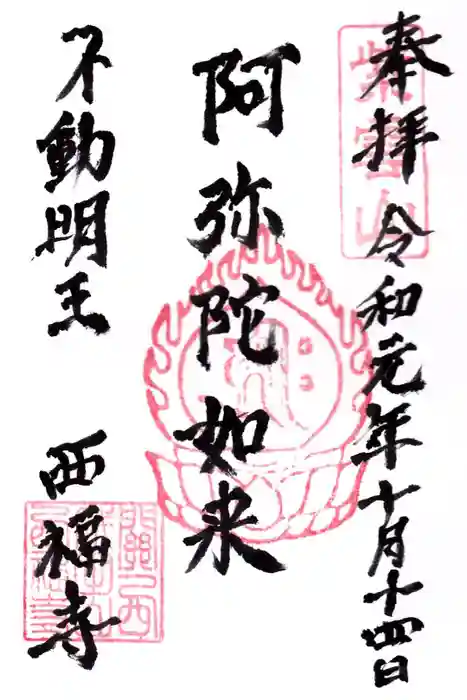 奉拝 令和元年十月十四日
紫雲山
阿弥陀如来
不動明王
西福寺